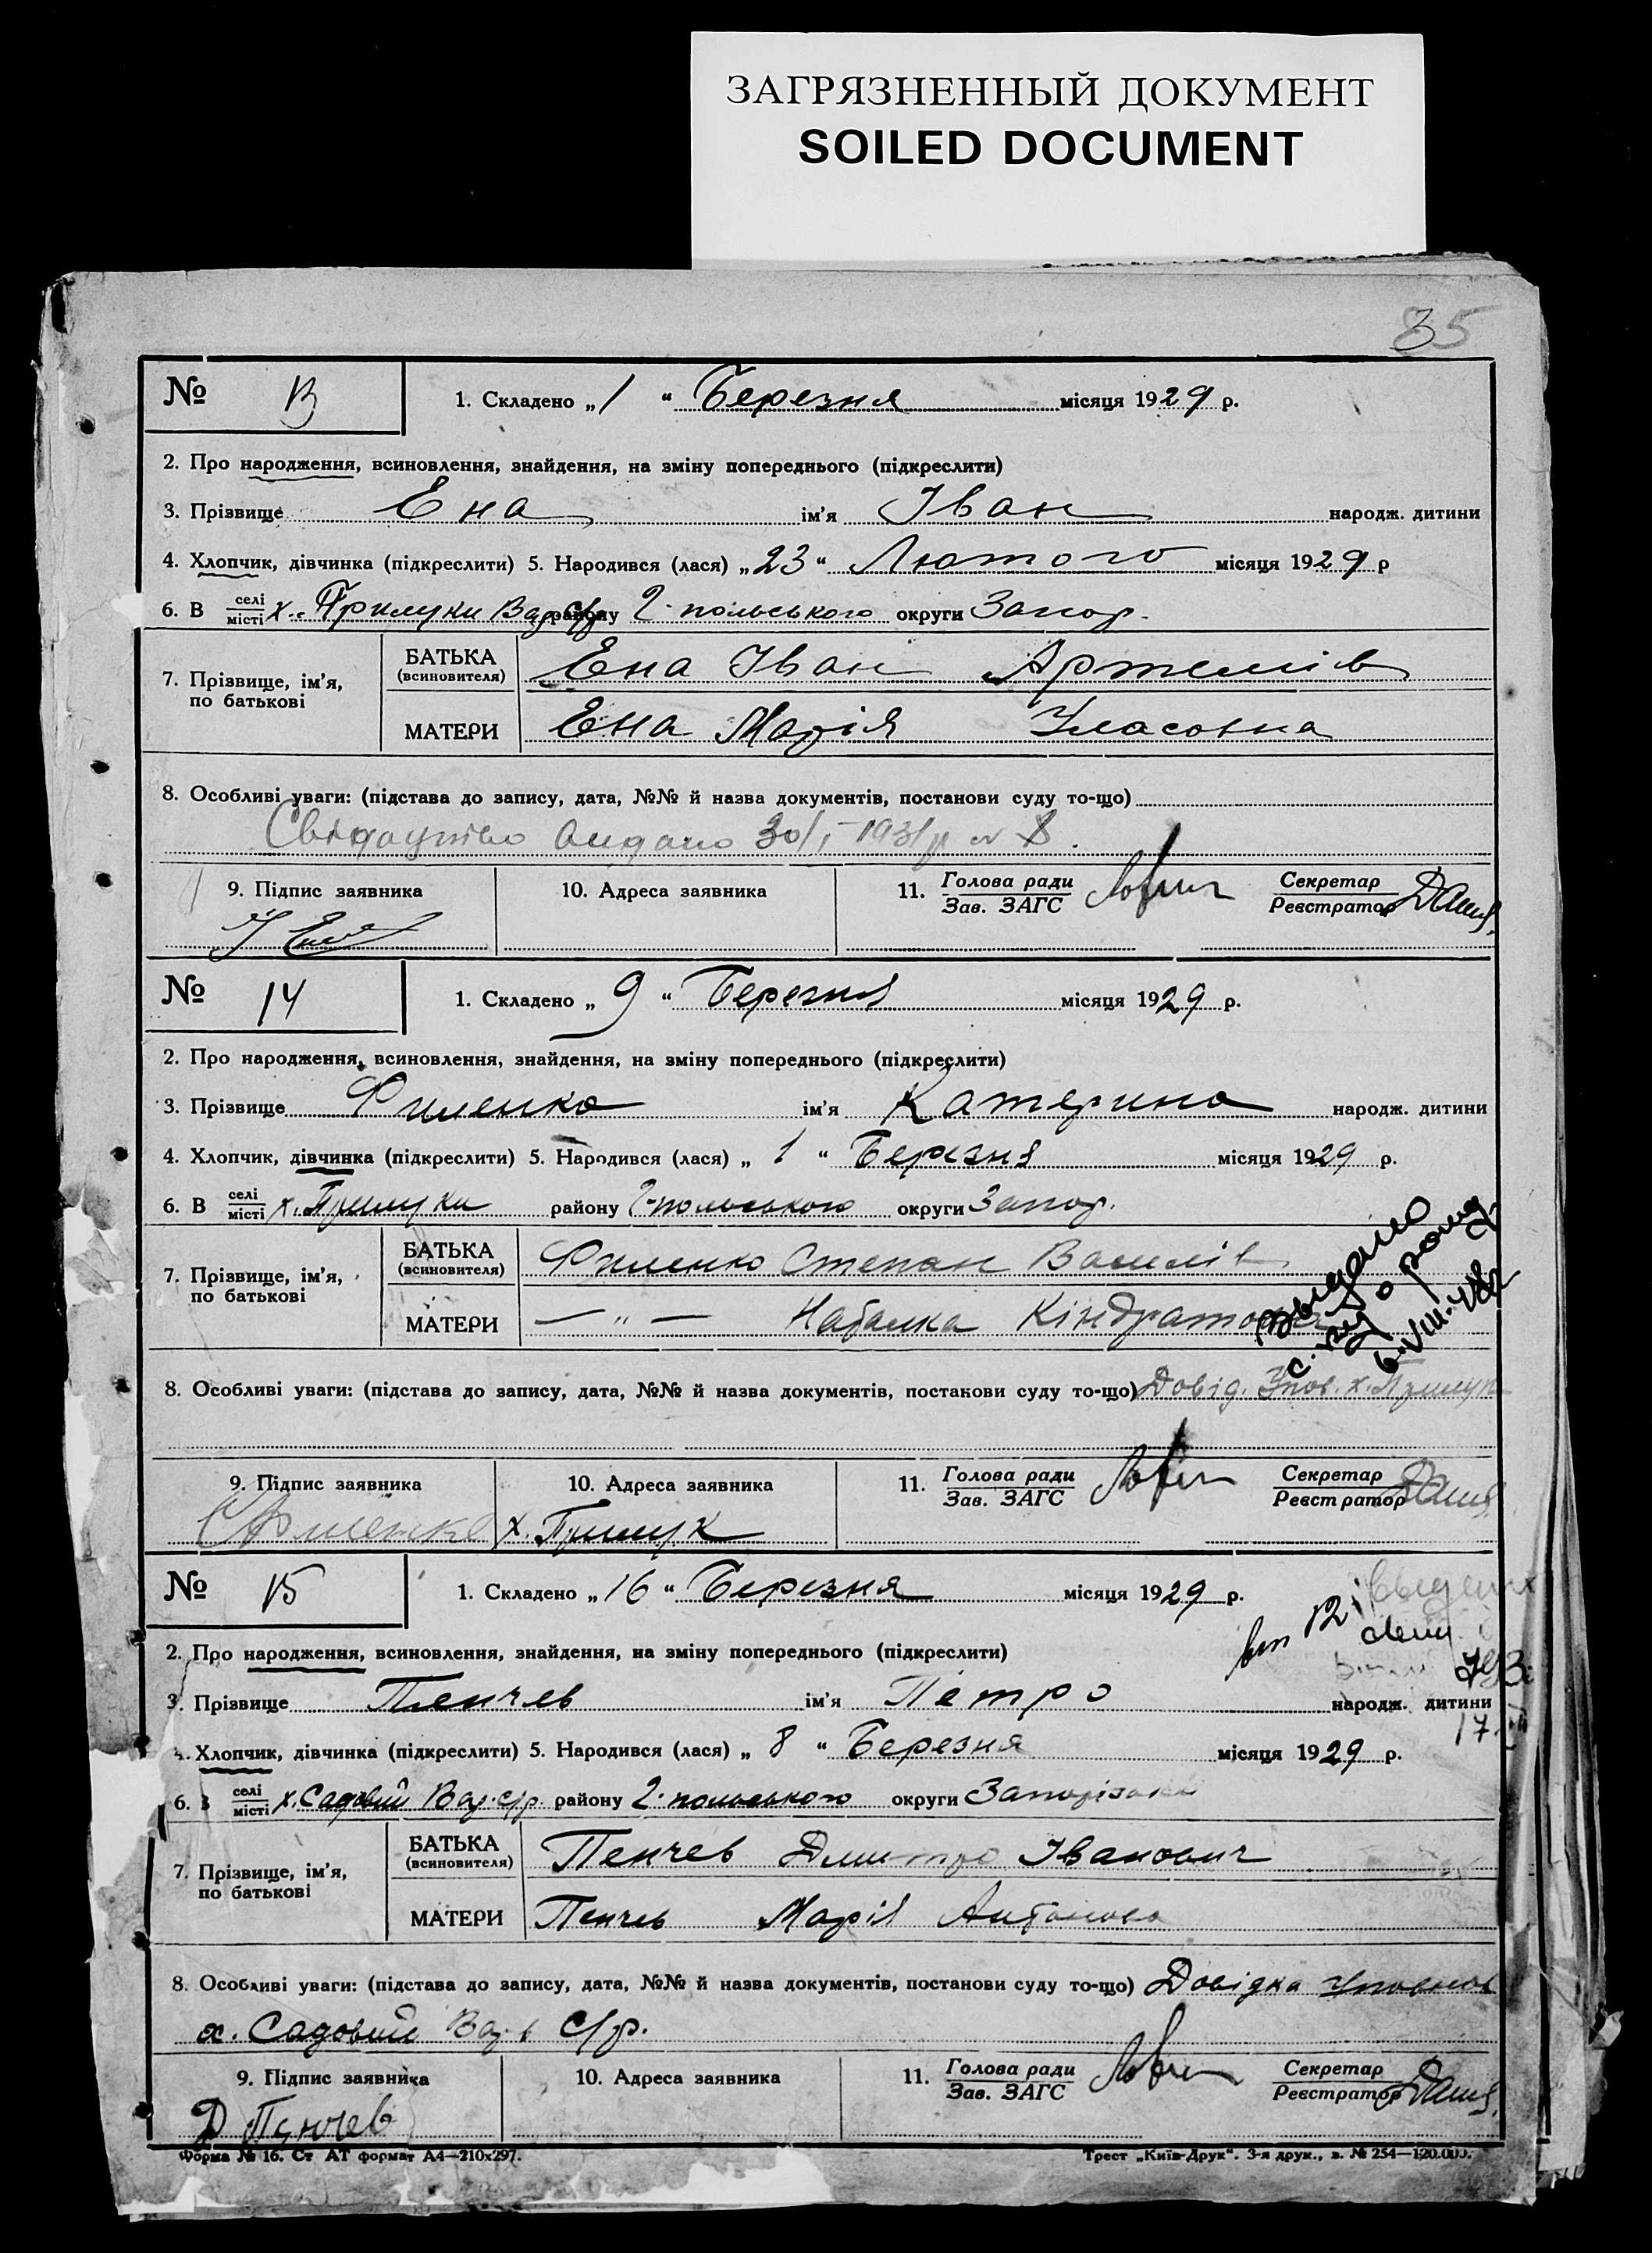 ЗАГРЯЗНЕННЫЙ ДОКУМЕНТ
SOILED DOCUMENT
35
№ 13
1. Складено „1“ Березня місяця 1929 р.
2. Про народження, всиновлення, знайдення, на зміну попереднього (підкреслити)
3. Прізвище Ена ім'я Іван народж. дитини
4. Хлопчик, дівчинка (підкреслити) 5. Народився (лася) „23“ Лютого місяця 1929 р
6. В селі/місті х. Прилуки Вар. с/р району 2-польського округи Запор.
7. Прізвище, ім'я, по батькові
БАТЬКА (всиновителя) Ена Іван Артемів
МАТЕРИ Ена Марія Уласовна
8. Особливі уваги: (підстава до запису, дата, №№ й назва документів, постанови суду то-що)
Свідоцтво видано 30/I-1931 р № 8.
9. Підпис заявника 10. Адреса заявника 11. Голова ради/Зав. ЗАГС Секретар/Реєстратор
І Ена
№ 14
1. Складено „9“ Березня місяця 1929 р.
2. Про народження, всиновлення, знайдення, на зміну попереднього (підкреслити)
3. Прізвище Филенко ім'я Катерина народж. дитини
4. Хлопчик, дівчинка (підкреслити) 5. Народився (лася) „1“ Березня місяця 1929 р.
6. В селі/місті х. Прилуки району 2-польського округи Запор.
7. Прізвище, ім'я, по батькові
БАТЬКА (всиновителя) Филенко Степан Василів
МАТЕРИ — „ — Наталка Кіндратовна
Выдано
с-ву о рожд
6.VIII.48г
8. Особливі уваги: (підстава до запису, дата, №№ й назва документів, постанови суду то-що) Довід. Упов. х. Прилук
9. Підпис заявника 10. Адреса заявника 11. Голова ради/Зав. ЗАГС Секретар/Реєстратор
С Филенко х. Прилук
№ 15
1. Складено „16“ Березня місяця 1929 р.
2. Про народження, всиновлення, знайдення, на зміну попереднього (підкреслити)
3. Прізвище Пенчев ім'я Петро народж. дитини
4. Хлопчик, дівчинка (підкреслити) 5. Народився (лася) „8“ Березня місяця 1929 р.
6. В селі/місті х. Садовий Вар. с/р. району 2-польського округи Запорізької
7. Прізвище, ім'я, по батькові
БАТЬКА (всиновителя) Пенчев Дмитро Іванович
МАТЕРИ Пенчев Марія Антонова
8. Особливі уваги: (підстава до запису, дата, №№ й назва документів, постанови суду то-що) Довідка Уповнов
х. Садовий Вар-в с/р.
9. Підпис заявника 10. Адреса заявника 11. Голова ради/Зав. ЗАГС Секретар/Реєстратор
Д Пенчев
Форма № 16. Ст АТ формат А4—210х297. Трест „Київ-Друк“. 3-я друк., з. № 254—120.000.